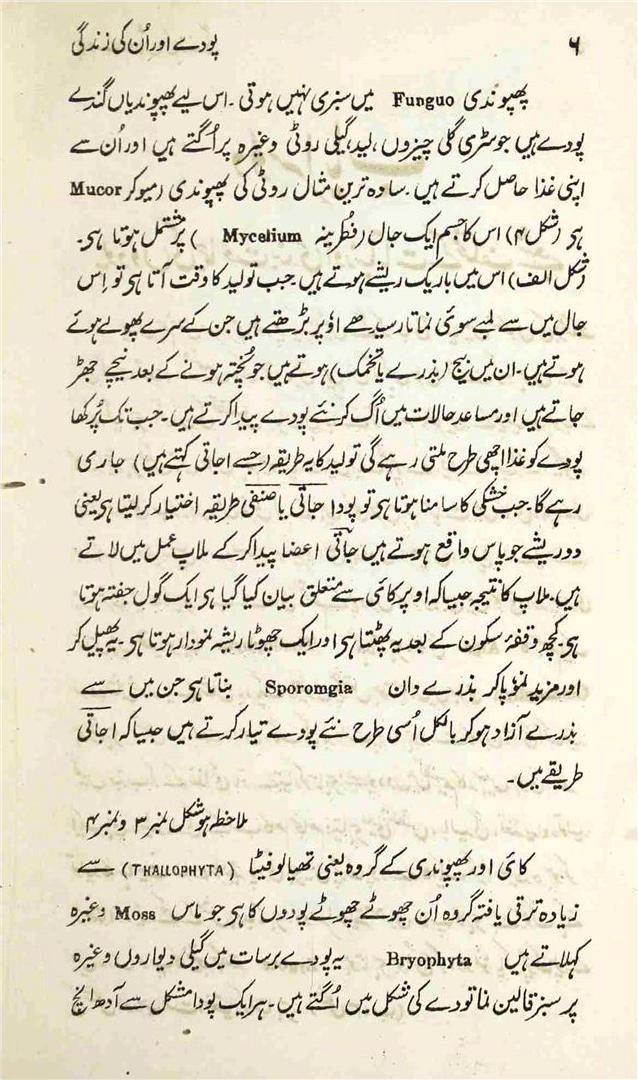 ۶ پودے اور اُن کی زندگی
پھپوندی Funguo میں سبزی نہیں ہوتی۔ اس لیے پھپوندیاں گندے
پودے ہیں جو سڑی گلی چیزوں، لید، گیلی روٹی وغیرہ پر اُگتے ہیں اور اُن سے
اپنی غذا حاصل کرتے ہیں۔ سادہ ترین مثال روٹی کی پھپوندی (میوکر Mucor
ہی (شکل ۴) اس کا جسم ایک جال (فُطرینہ Mycelium ) پر مشتمل ہوتا ہی۔
(شکل الف) اس میں باریک ریشے ہوتے ہیں۔ جب تولید کا وقت آتا ہی تو اِس
جال میں سے لمبے سوئی نما تار سیدھے اوٗپر بڑھتے ہیں جن کے سرے پھولے ہوئے
ہوتے ہیں۔ ان میں بیج (بذرے یا تخمک) ہوتے ہیں جو پُختہ ہونے کے بعد نیچے جھڑ
جاتے ہیں اور مساعد حالات میں اُگ کر نئے پودے پیدا کرتے ہیں۔ جب تک پُرکھا
پودے کو غذا اچھی طرح ملتی رہے گی تولید کا یہ طریقہ (جسے اجاتی کہتے ہیں) جاری
رہے گا۔ جب خشکی کا سامنا ہوتا ہی تو پودا جاتی یا صنفی طریقہ اختیار کر لیتا ہی یعنی
دو ریشے جو پاس واقع ہوتے ہیں جاتی اعضا پیدا کر کے ملاپ عمل میں لاتے
ہیں۔ ملاپ کا نتیجہ جیسا کہ اوپر کائی سے متعلق بیان کیا گیا ہی ایک گول جفتہ ہوتا
ہی۔ کچھ وقفۂ سکون کے بعد یہ پھٹتا ہی اور ایک چھوٹا ریشہ نمودار ہوتا ہی۔ یہ پھیل کر
اور مزید نمو پا کر بذرے دان Sporomgia بناتا ہی جن میں سے
بذرے آزاد ہو کر بالکل اُسی طرح نئے پودے تیار کرتے ہیں جیسا کہ اجاتی
طریقے میں۔
ملاحظہ ہو شکل نمبر ۳ و نمبر ۴
کائی اور پھپوندی کے گروہ یعنی تھیالوفیٹا (THALLOPHYTA) سے
زیادہ ترقی یافتہ گروہ اُن چھوٹے چھوٹے پودوں کا ہی جو ماس Moss وغیرہ
کہلاتے ہیں Bryophyta یہ پودے برسات میں گیلی دیواروں وغیرہ
پر سبز قالین نما تودے کی شکل میں اُگتے ہیں۔ ہر ایک پودا مشکل سے آدھ انچ